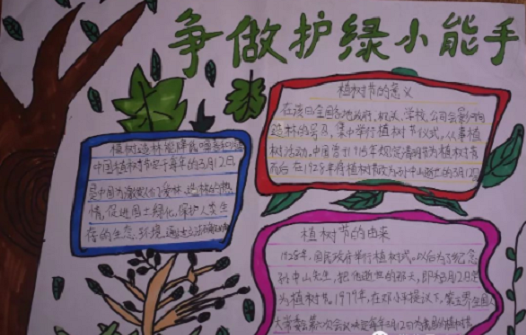 争做护绿小能手
植树节的意义
在该日全国各地政府、机关、学校、公司会响应
造林的号召,集中举行植树节仪式,从事植
树活动。中国曾于1915年规定清明节为植树节
而后在1928年将植树节改为孙中山逝世的3月12日
植树造林
中国植树节定于每年的3月12日
是中国为激发人们爱林、造林的热
情,促进国土绿化,保护人类生
存的生态环境,通过立法
植树节的由来
1928年,国民政府举行植树式。以后为了纪念
孙中山先生,把他逝世的那天,即3月12日定
为植树节。1979年,在邓小平提议下,第五届全国人
大常委会第六次会议决定每年3月12日为我国的植树节